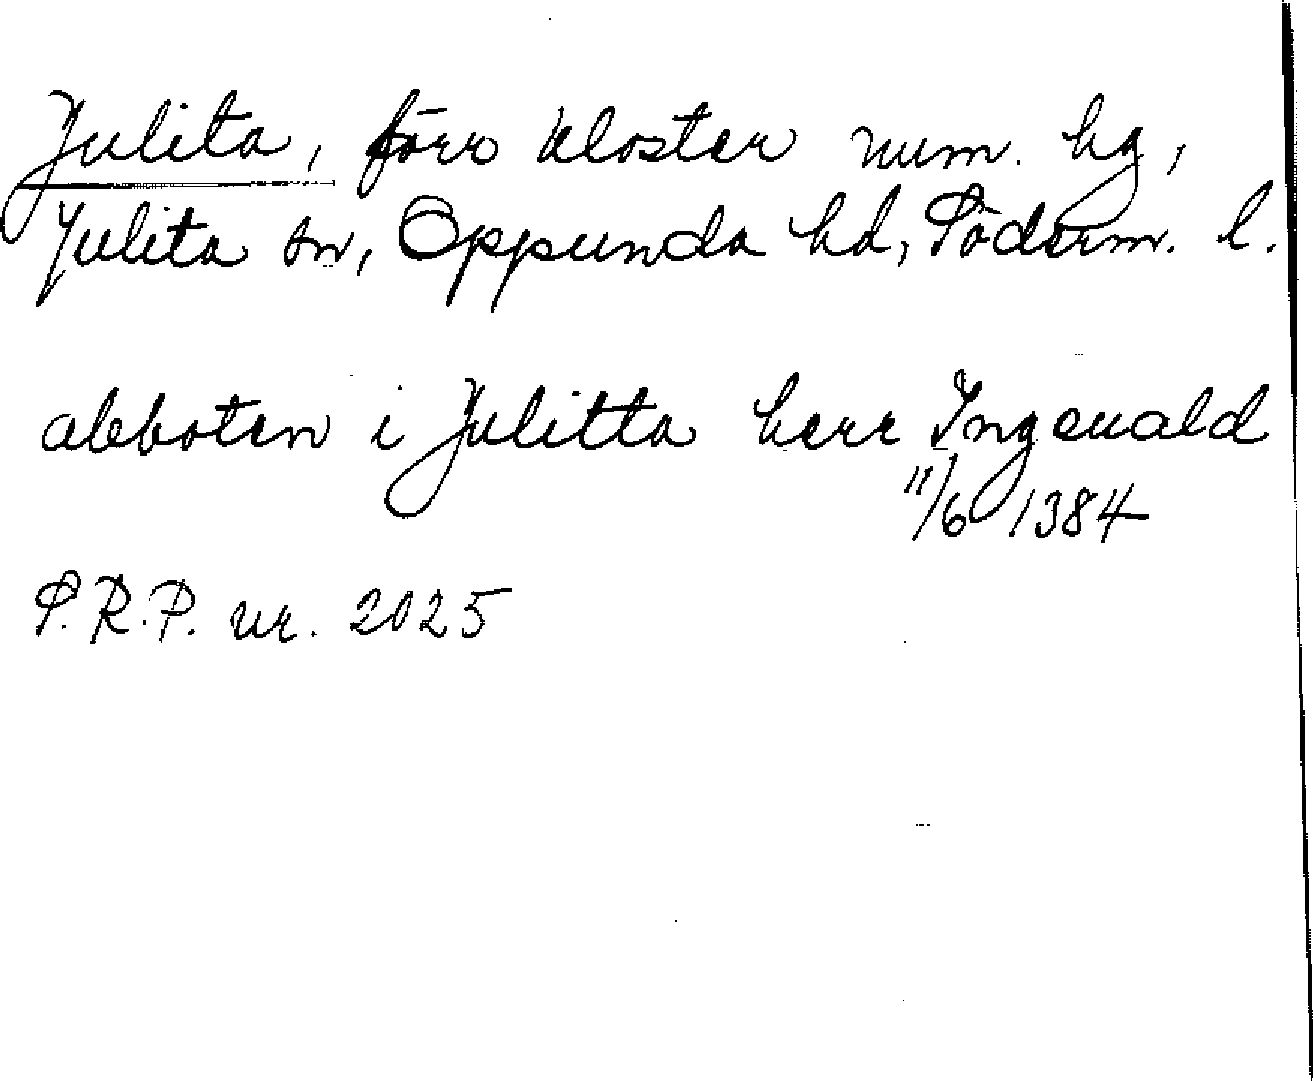 Julita, förr kloster num. hg,
Julita sn, Oppunda hd, Söderm. l.
abboten i Julitta herr Ingeuald
11/6 1384
S.R.P. nr. 2025